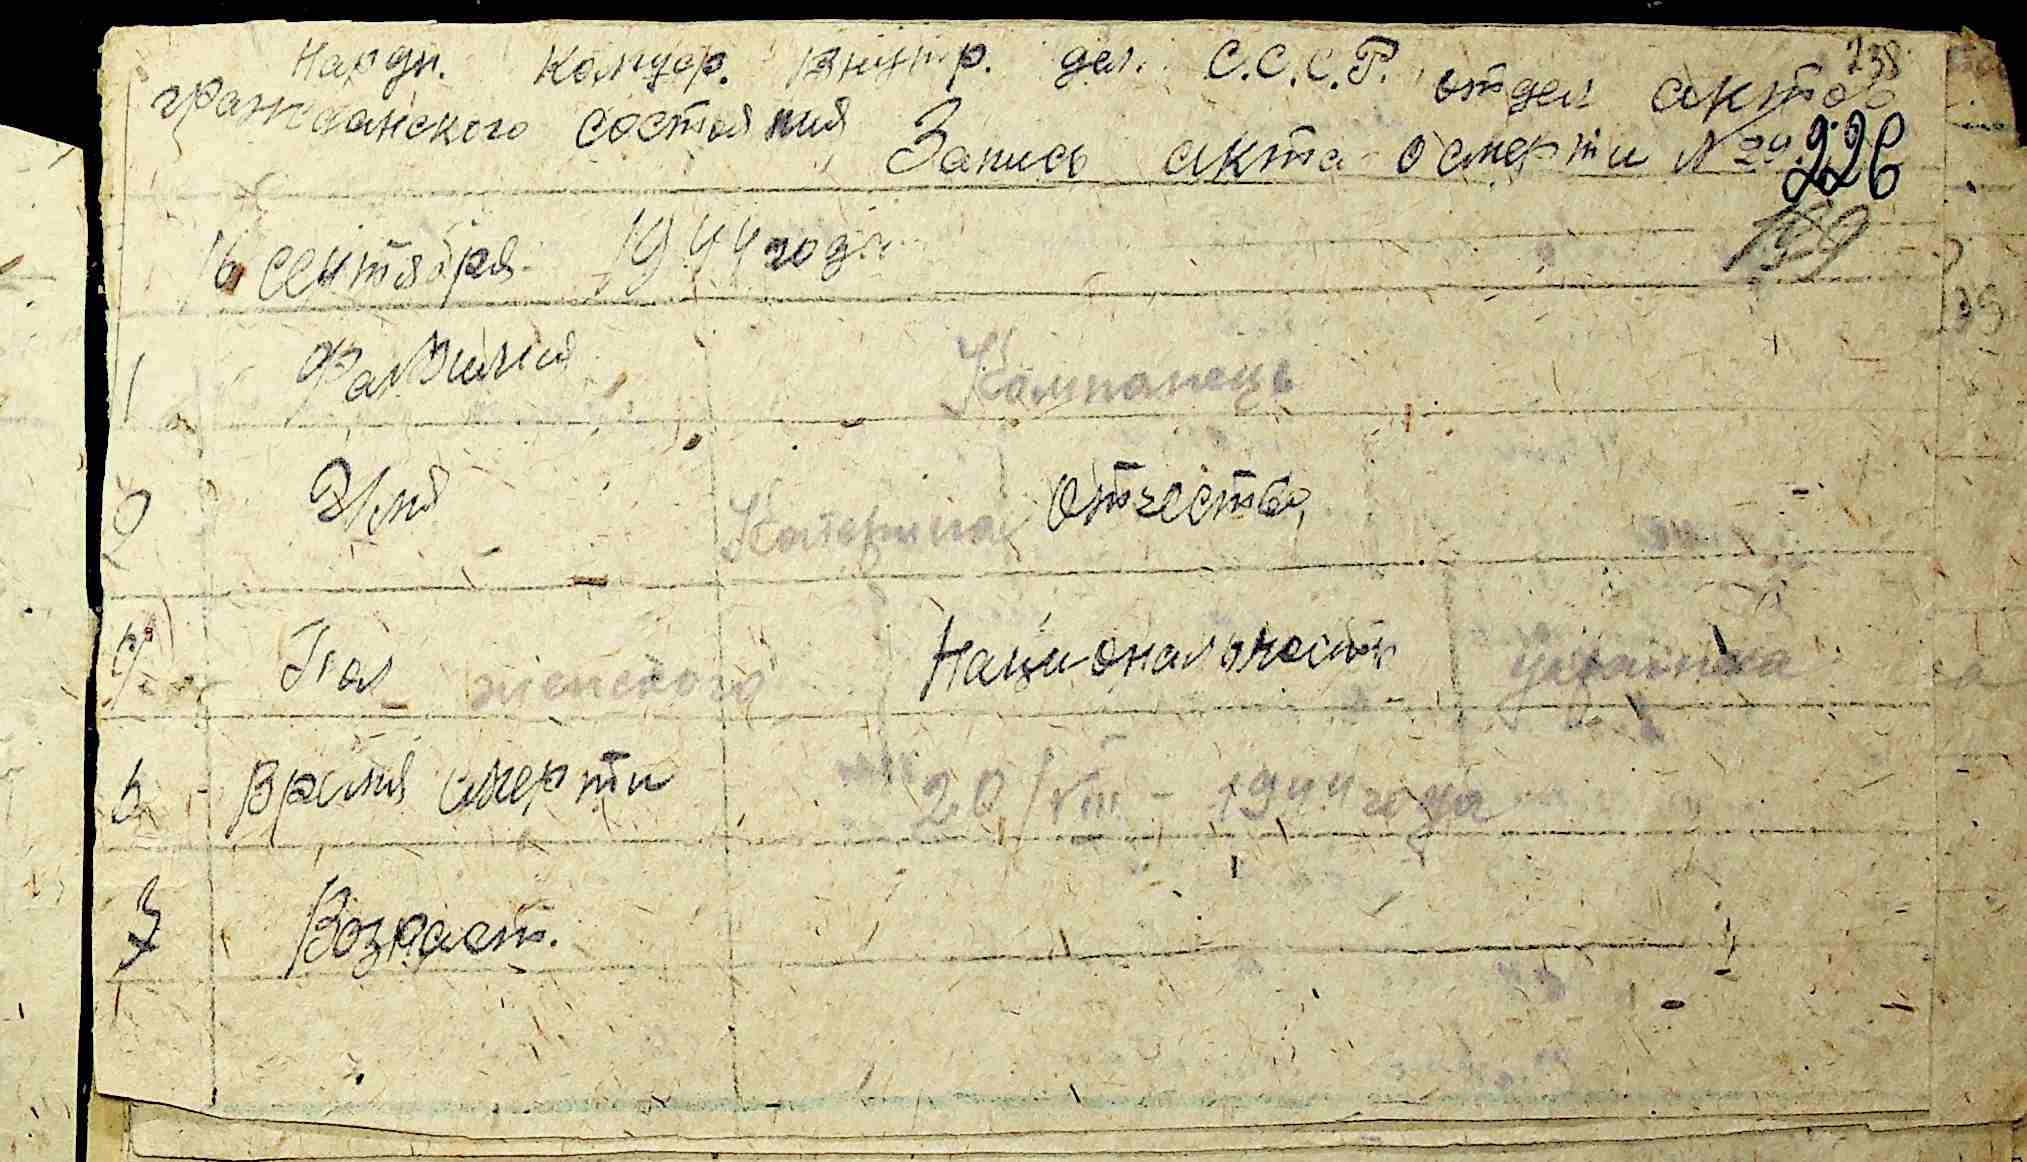 238
Народн. Комисар. Внутр. дел. С.С.С.Р. отдел актов
гражданского состояния Запись акта о смерти № 29.
226
16 сентября 1944 года
139
1 Фамилия Компанець
2 Имя Катерина Отчество -
4 Пол женского Национальность Украинка
5 Время смерти 20/VIII - 1944 года
7 Возраст.